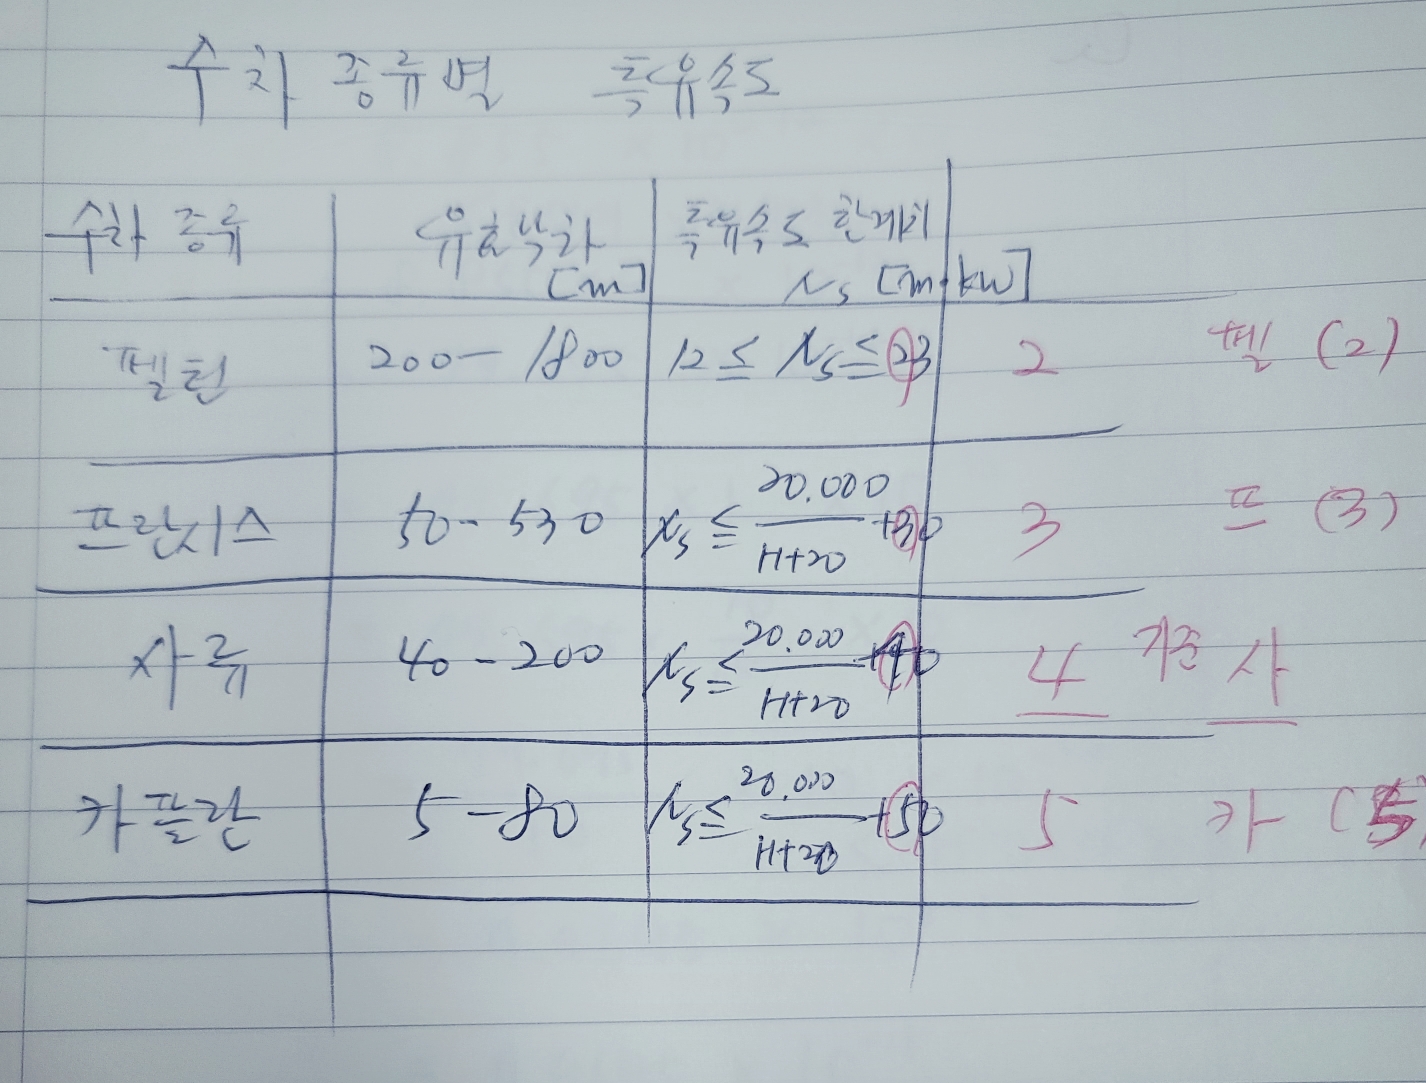 수차 종류별 특유속도
수차 종류 유효낙차 [m] 특유속도 한계치 Ns [m·kw]
펠턴 200 - 1800 12 ≤ Ns ≤ 23 2 펠 (2)
프란시스 50 - 530 Ns ≤ 20.000/H+20 +30 3 프 (3)
사류 40 - 200 Ns ≤ 20.000/H+20 +40 4 기준 사
카플란 5 - 80 Ns ≤ 20.000/H+20 +50 5 카 (5)